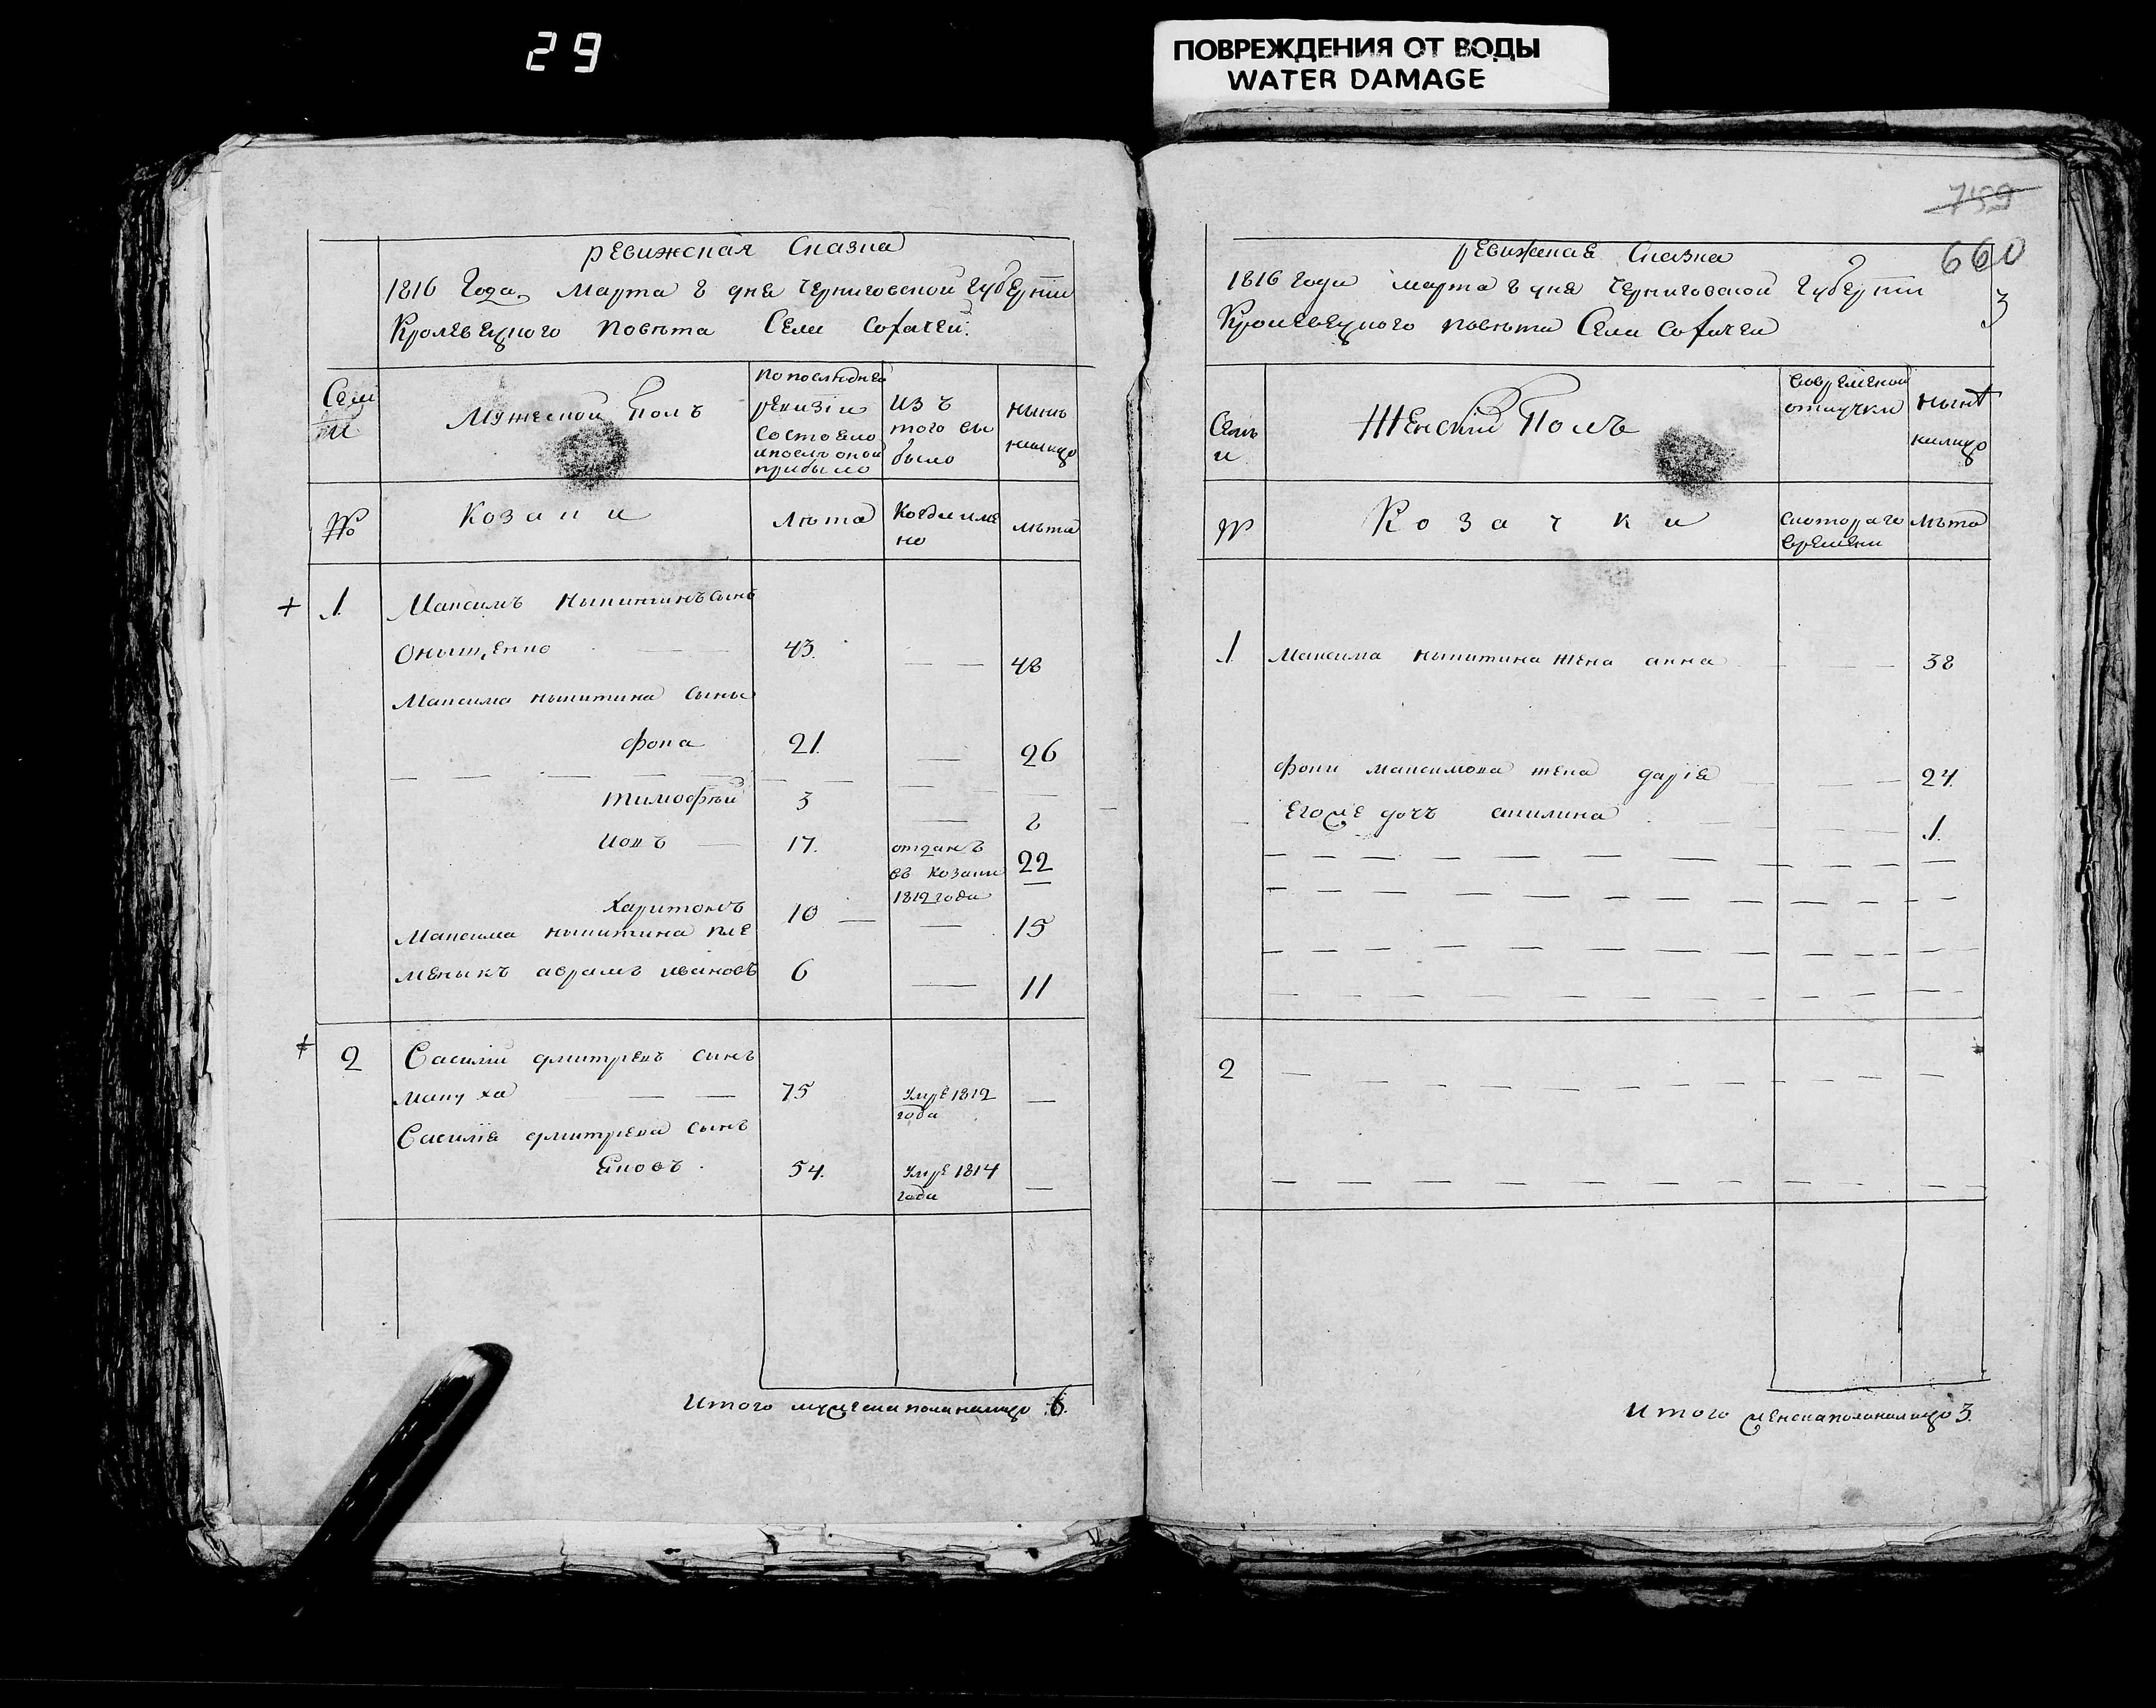 29
ПОВРЕЖДЕНИЯ ОТ ВОДЫ
WATER DAMAGE
ревижская Сказка
1816 Года Марта 8 дня Черниговской Губернии
Кролевецкого Повѣта Села
Семьи
Мужеской Полъ
По последней ревизіи состояло и послѣ оной прибыло
Изъ того выбыло
Нынѣ налицо
№
Козаки
Лѣта
Когда имянно
Лѣта
1
Максимъ Никитинъ сынъ
Онищенко 43. 48
Максима Никитина сыны
фока 21. 26
тимофѣй 3 8
Иовъ 17. отданъ въ козаки 1812 года 22
Харитонъ 10 15
Максима Никитина пле
меникъ аврамъ ивановъ 6 11
2
Василій дмитревъ сынъ
75 Умре 1812 года
Василія дмитрева сынъ
Яковъ 54. Умре 1814 года
Итого мужеска пола налицо 6.
759
660
3
ревижская Сказка
1816 года марта 8 дня Черниговской Губернии
Кролевецкого повѣта Села
Семьи
Женский Полъ
Во временной отлучки
Нынѣ налицо
№
Козачки
Скоторого времени
Лѣта
1 Максима Никитина жена анна 38
фоки максимова жена дарія 24.
Его же дочь акилина 1.
2
Итого женска пола налицо 3.